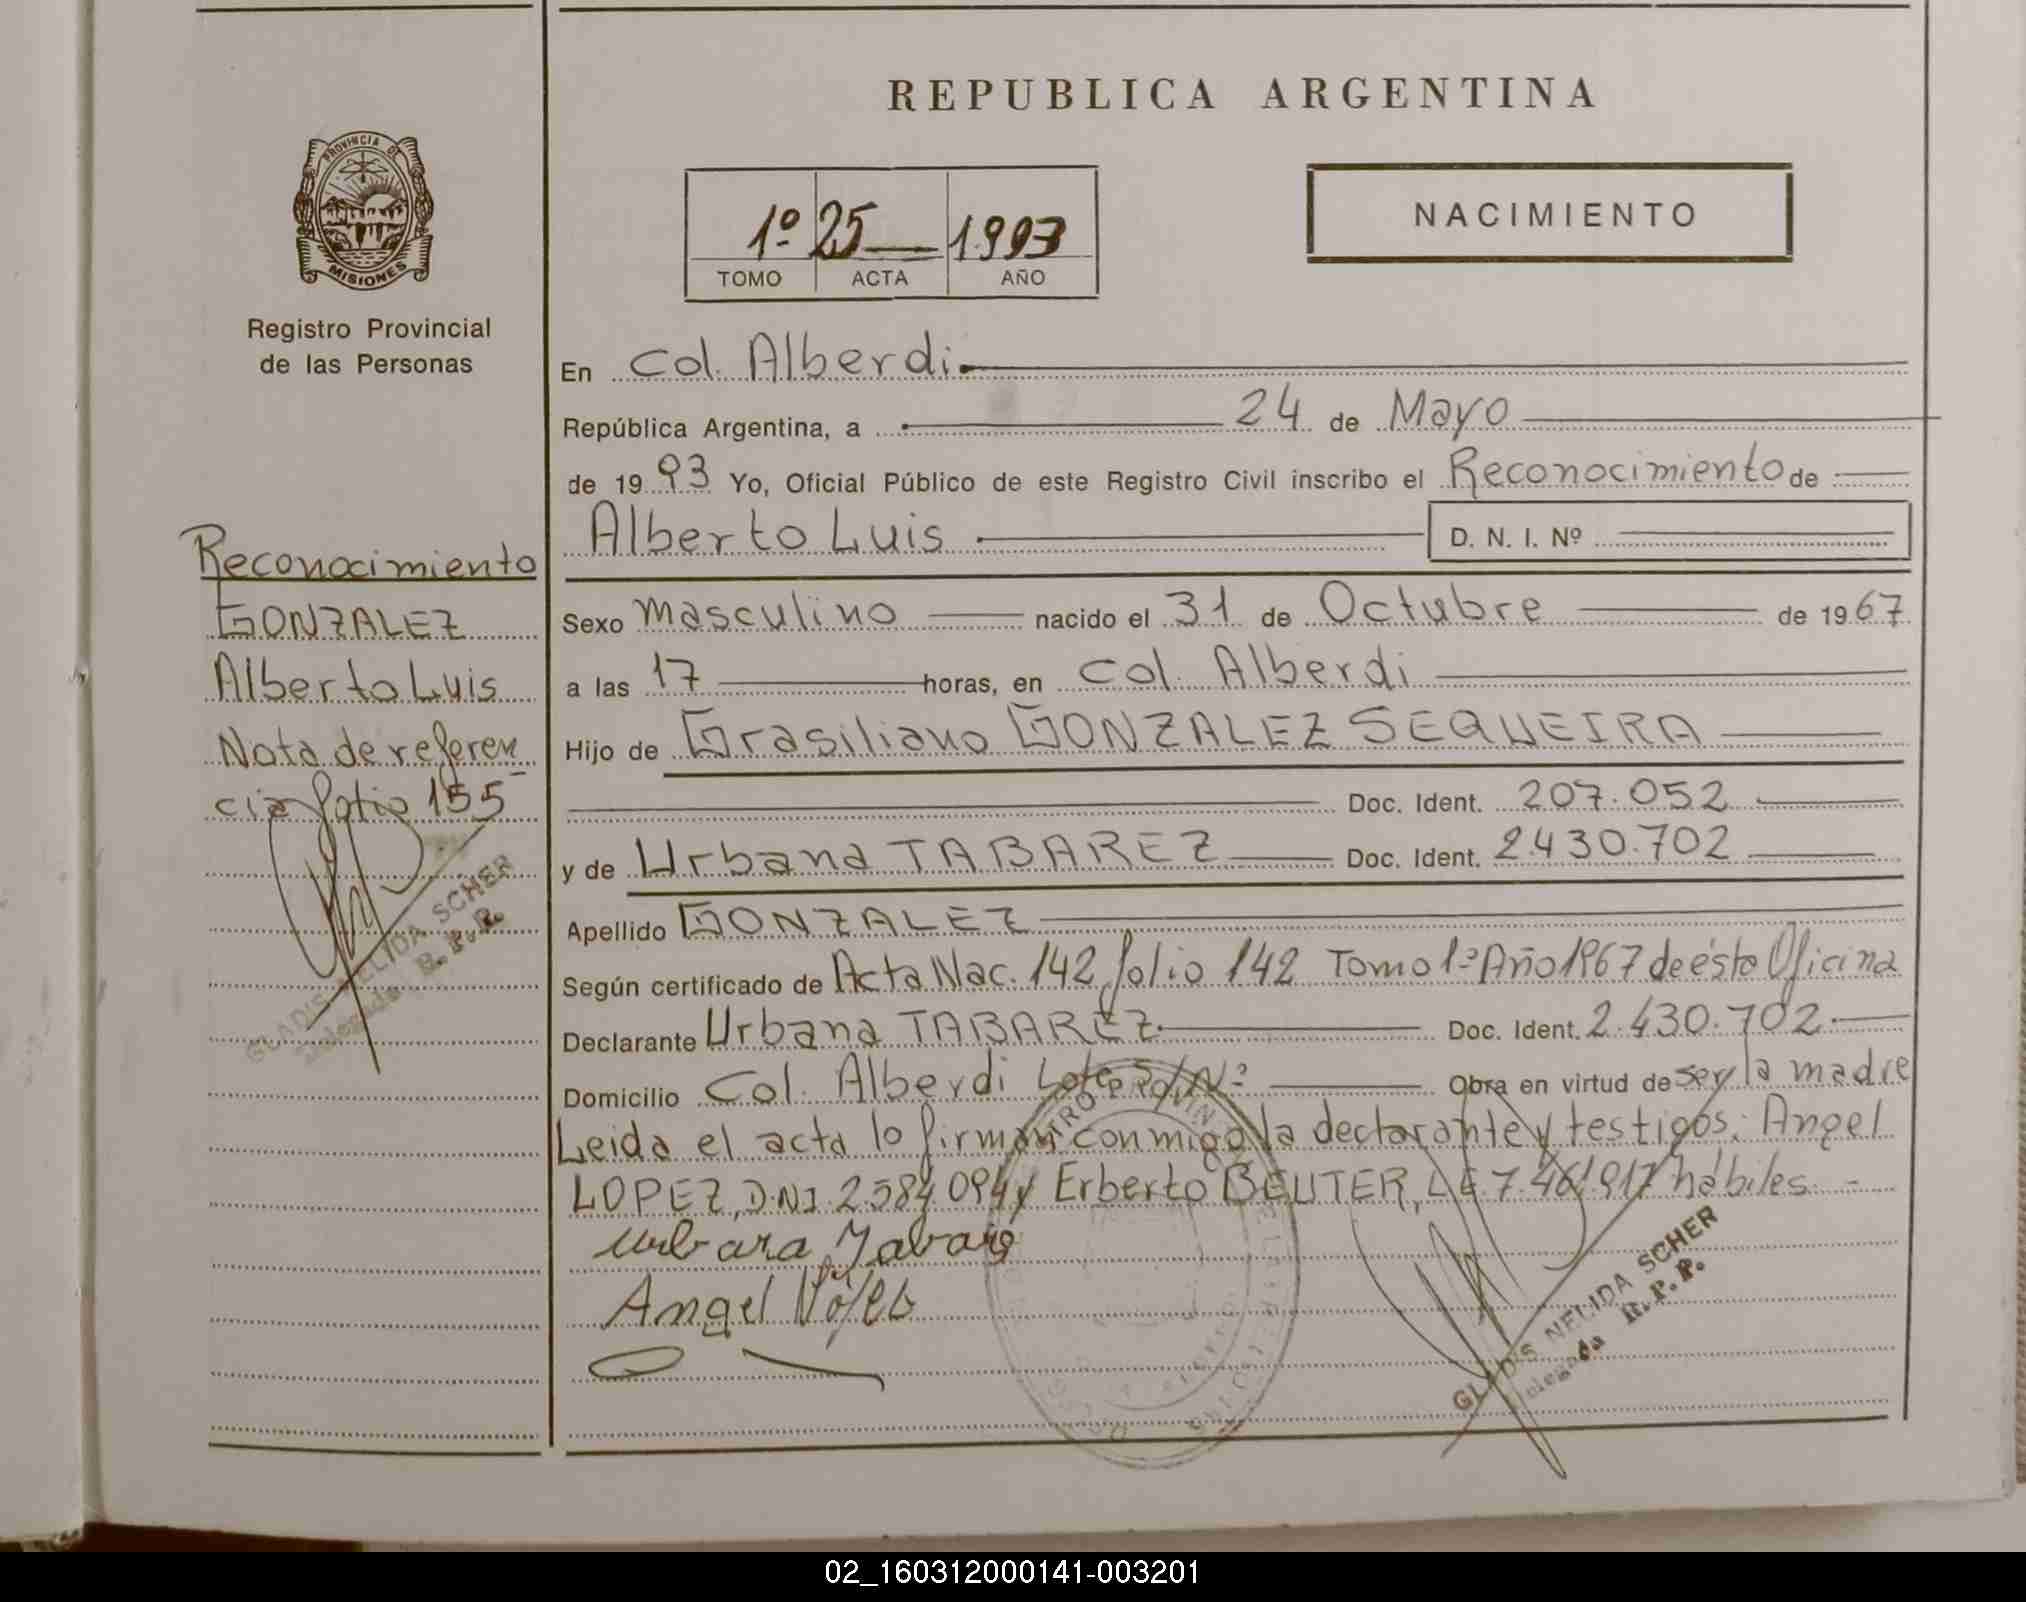 REPUBLICA ARGENTINA
PROVINCIA DE
MISIONES
Registro Provincial
de las Personas
1º 25 1993
TOMO ACTA AÑO
NACIMIENTO
En Col. Alberdi
República Argentina, a 24 de Mayo
de 1993 Yo, Oficial Público de este Registro Civil inscribo el Reconocimiento de
Alberto Luis D. N. I. Nº
Sexo masculino nacido el 31 de Octubre de 1967
a las 17 horas, en Col. Alberdi
Hijo de Grasiliano GONZALEZ SEQUEIRA
Doc. Ident. 207.052
y de Urbana TABAREZ Doc. Ident. 2.430.702
Apellido GONZALEZ
Según certificado de Acta Nac. 142 folio 142 Tomo 1º Año 1967 de ésta Oficina
Declarante Urbana TABAREZ Doc. Ident. 2.430.702
Domicilio Col. Alberdi Lote S/Nº Obra en virtud de ser la madre
Leida el acta lo firman conmigo la declarante y testigos: Angel
LOPEZ, DNI 2.584.094 y Erberto BEUTER, LE 7.461.917 hábiles.-
Angel
GLADIS NELIDA SCHER
Delegada R. P. P.
Reconocimiento
GONZALEZ
Alberto Luis
Nota de referen
cia folio 155-
GLADIS NELIDA SCHER
Delegada R. P. P.
02_160312000141-003201